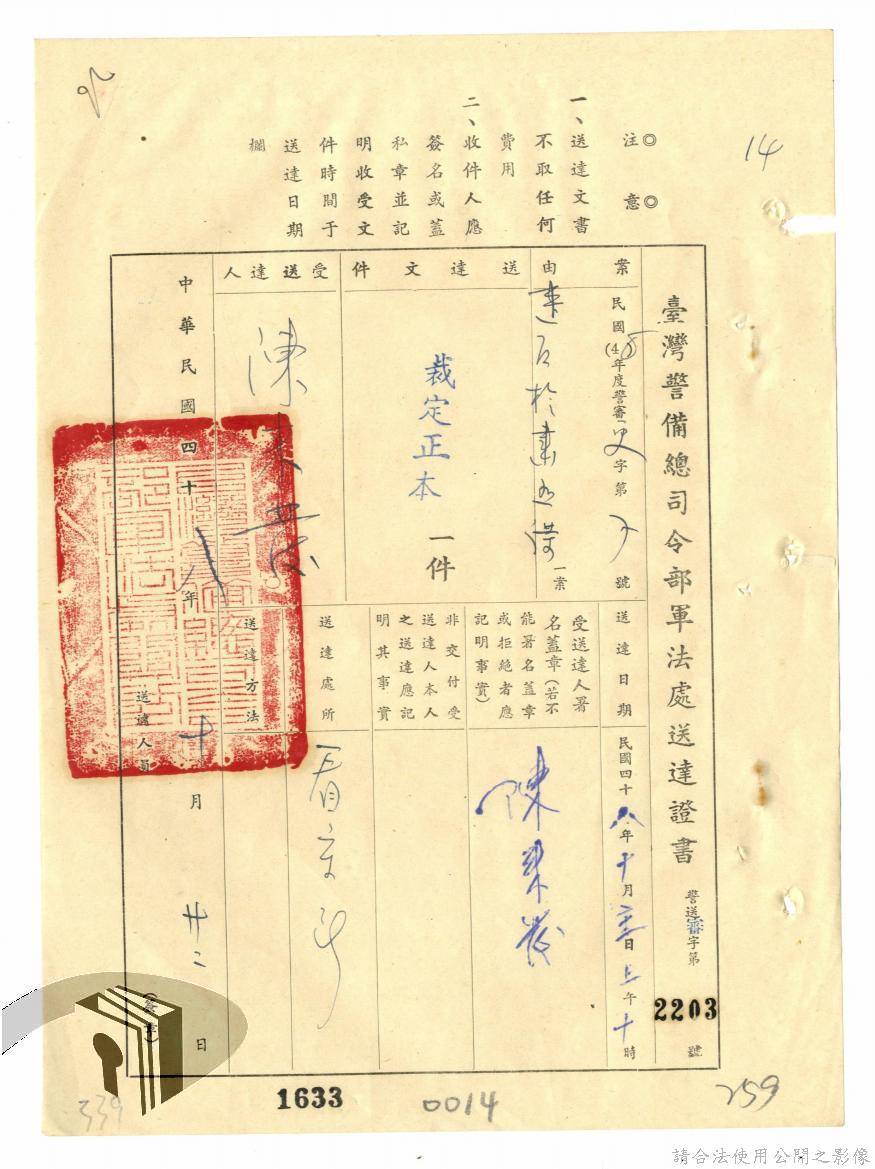 14
◎注意◎
一、送達文書
不取任何
費用
二、收件人應
簽名或蓋
私章並記
明收受文
件時間于
送達日期
欄
臺灣警備總司令部軍法處送達證書
警送審字第
2203
號
案由
民國(48年度警審
字第
號
一案
送達文件
裁定正本
一件
受送達人
陳
送達日期
民國四十八年十月
日上午十時
受送達人署
名蓋章(若不
能署名蓋章
或拒絶者應
記明事實)
陳
非交付受
送達人本人
之送達應記
明其事實
送達處所
看守所
送達方法
中華民國四十八年十月廿二日
送達人員
(簽章)
339
1633
0014
259
請合法使用公開之影像